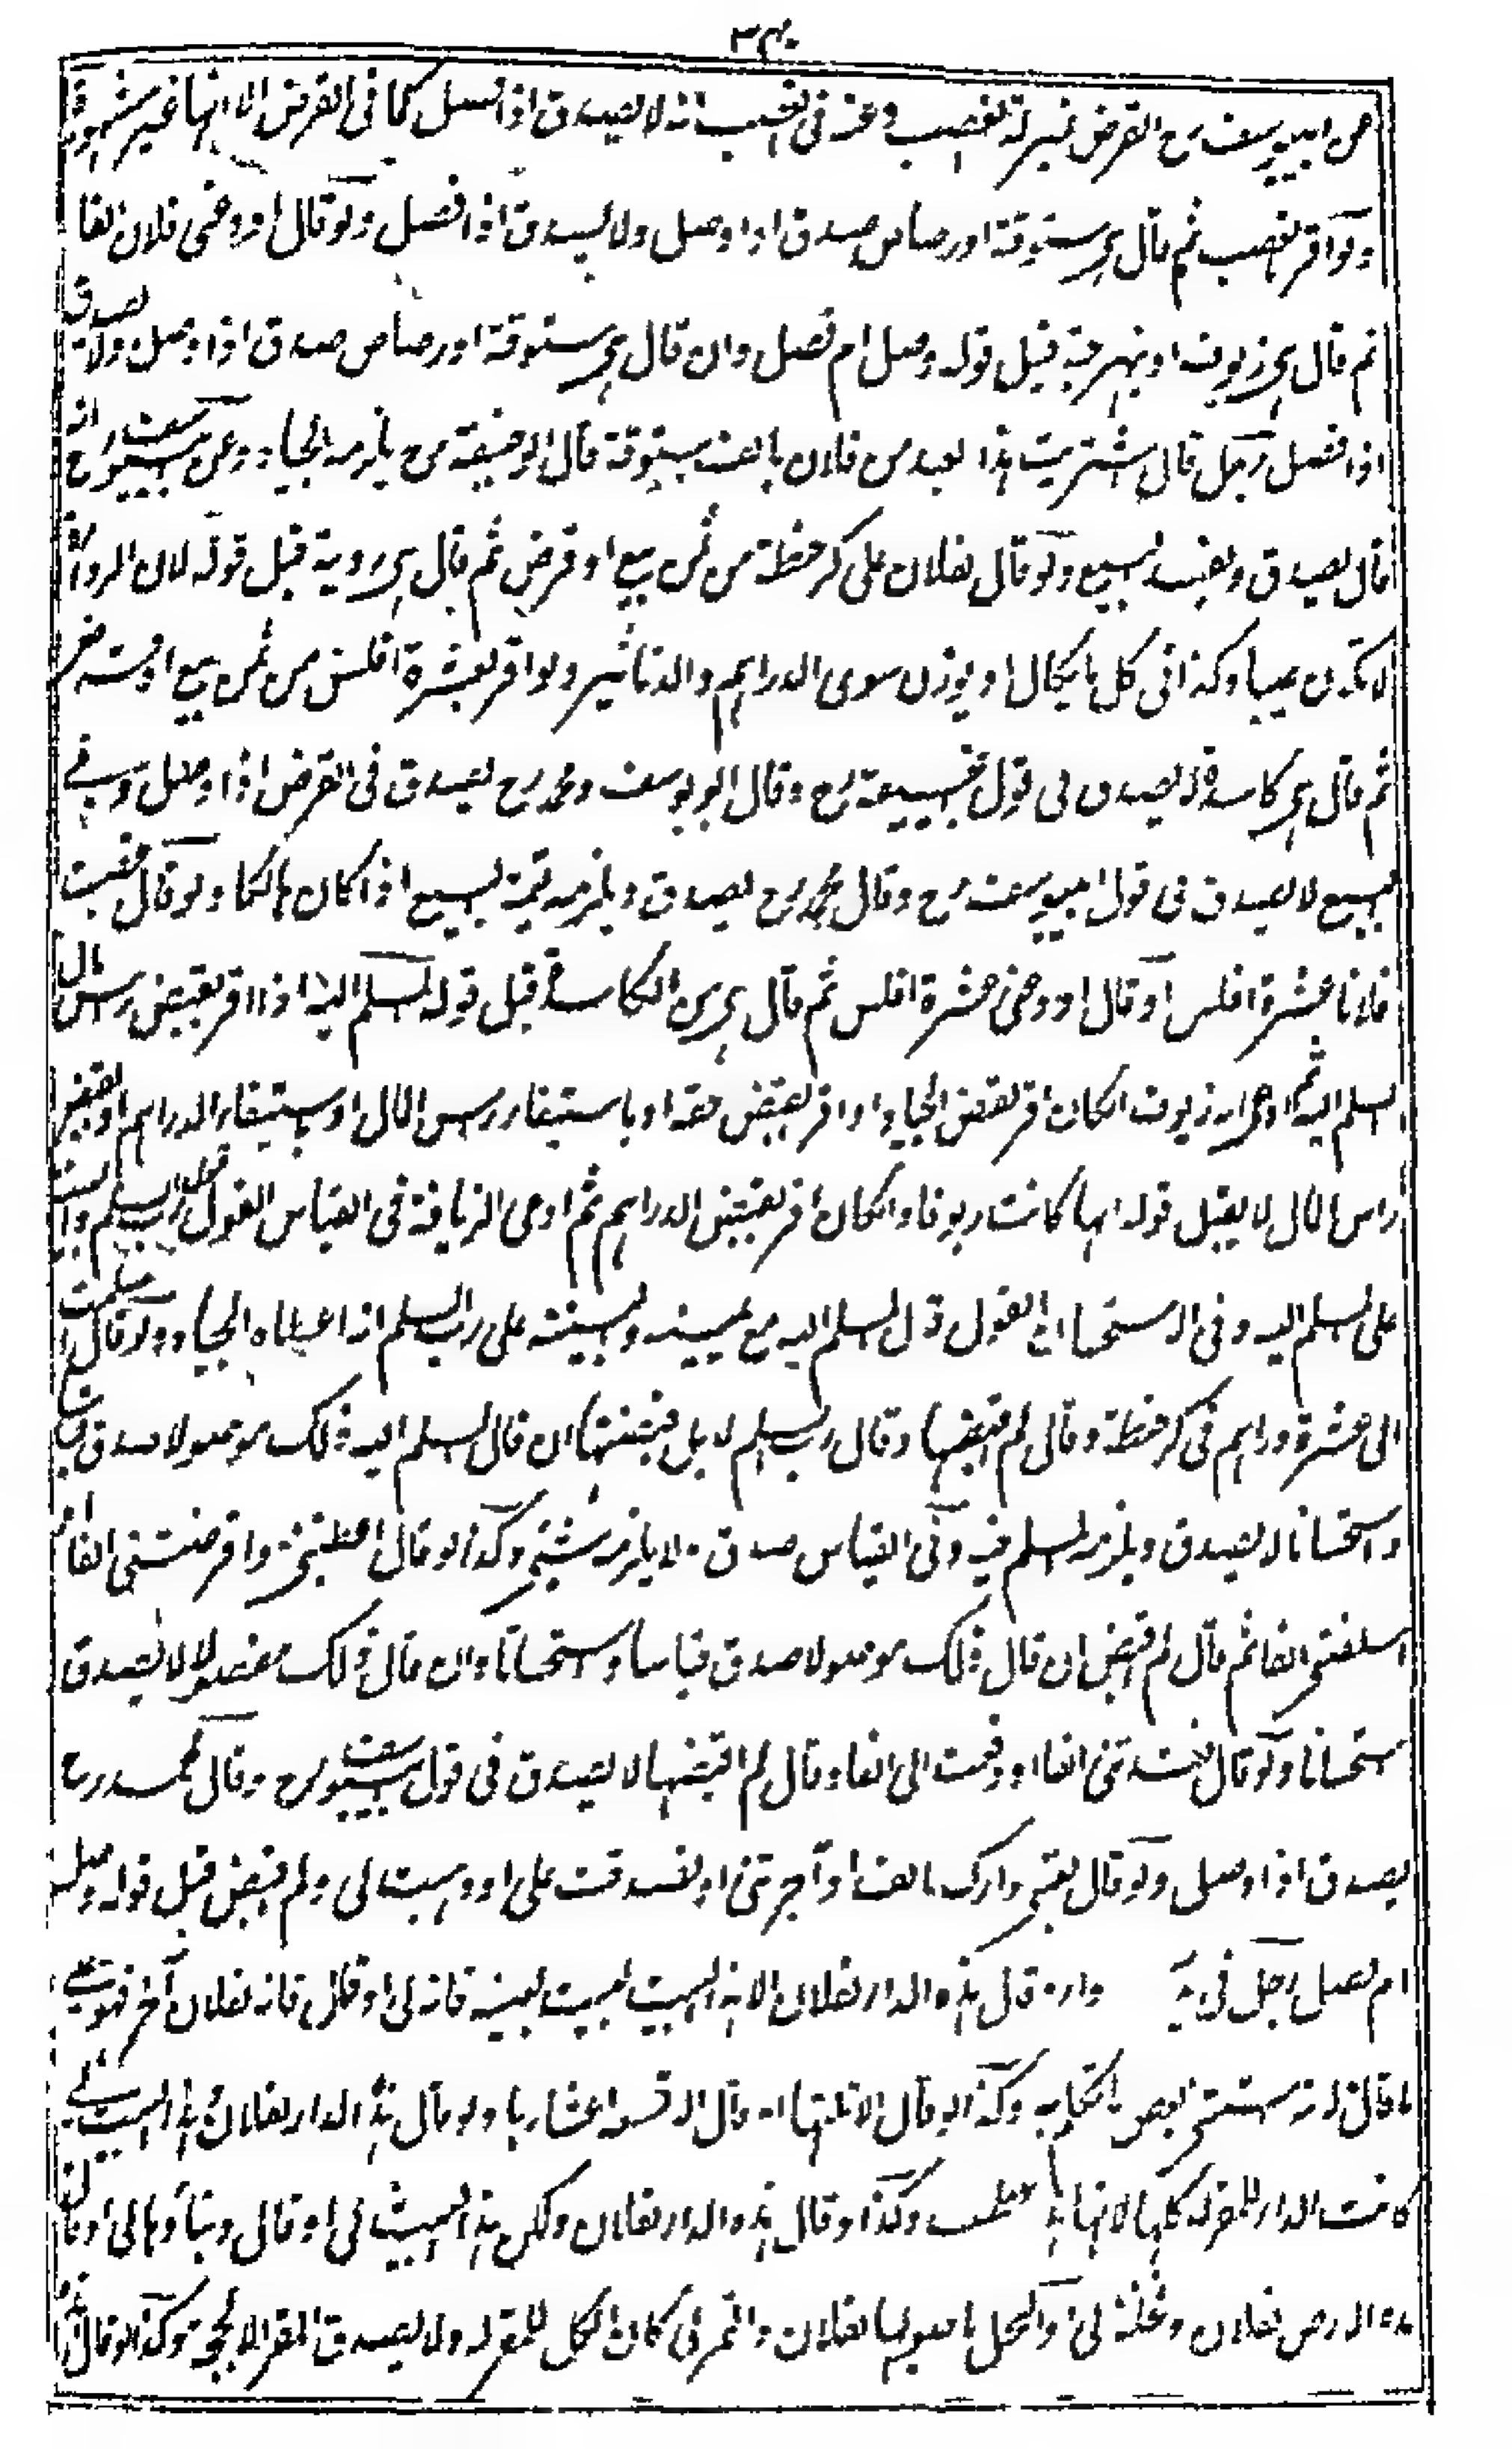 عن ابييوسف رح القرض بمنزلة الغصب وعنه فى الغصب انه لا يصدق اذا فصل كما فى القرض الا انها غير مشهورة
ولو اقر بغصب ثم قال هى ستوقة او رصاص صدق اذا وصل ولا يصدق اذا فصل ولو قال اودعنى فلان الفا
ثم قال هى زيوف او نبهرجة قبل قوله وصل ام فصل وان قال هى ستوقة او رصاص صدق اذا وصل ولا يصدق
اذا فصل رجل قال اشتريت هذا العبد من فلان بالف ستوقة قال ابو حنيفة رح يلزمه الجياد وعن ابييوسف رح انه
قال يصدق ويفسد البيع ولو قال لفلان على كر حنطة من ثمن بيع او قرض ثم قال هى ردية قبل قوله لان الرداءة
لا تكون عيبا وكذا فى كل ما يكال او يوزن سوى الدراهم والدنانير ولو اقر بعشرة افلس من ثمن بيع او قرض
ثم قال هى كاسدة لا يصدق فى قول ابيحنيفة رح وقال ابو يوسف ومحمد رح يصدق فى القرض اذا وصل وفى
البيع لا يصدق فى قول ابييوسف رح وقال محمد رح يصدق ويلزمه قيمة البيع اذا كان هالكا ولو قال غصبت
فلانا عشرة افلس او قال اودعنى عشرة افلس ثم قال هى من الكاسدة قبل قوله المسلم اليه اذا اقر بقبض رأس المال
المسلم اليه ثم ادعى انه زيوف ان كان اقر بقبض الجياد او اقر بقبض حقه او باستيفاء رأس المال او باستيفاء الدراهم او بقبض
راس المال لا يقبل قوله انها كانت زيوفا وان كان اقر بقبض الدراهم ثم ادعى الزيافة فى القياس القول قول رب السلم والبينة
على المسلم اليه وفى الاستحسان القول قول المسلم اليه مع يمينه والبينة على رب السلم انه اعطاه الجياد ولو قال اسلمت
الى عشرة دراهم فى كر حنطة وقال لم اقبضها وقال رب السلم لا بل قبضتها ان قال المسلم اليه ذلك موصولا صدق قياسا
واستحسانا لا يصدق ويلزمه المسلم فيه وفى القياس صدق ولا يلزمه شئ وكذا لو قال اعطيتنى واقرضتنى الفا او
اسلفتنى الفا ثم قال لم اقبض ان قال ذلك موصولا صدق قياسا واستحسانا وان قال ذلك مفصولا لا يصدق
استحسانا ولو قال نقدتنى الفا او دفعت الى الفا وقال لم اقبضها لا يصدق فى قول ابييوسف رح وقال محمد رح
يصدق اذا وصل ولو قال بعتنى دارك بالف او آجرتنى او تصدقت على او وهبت لى ولم اقبض قبل قوله وصل
ام فصل رجل فى يده داره قال هذه الدار لفلان الا هذا البيت لبيت بعينه فانه لى او قال فانه لفلان آخر فهو على
ما قال لانه استثنى بعض ما تكلم به وكذا لو قال الا ثلثها او قال الا تسعة اعشارها ولو قال هذه الدار لفلان وهذا البيت لى
كانت الدار للمقر له كلها لانها وكذا لو قال هذه الدار لفلان ولكن هذا البيت لى او قال وبناؤها لى او قال
هذه الارض لفلان ونخله لى او النخل باصولها لفلان والثمر لى كان الكل للمقر له ولا يصدق المقر الا بحجة وكذا لو قال هذه